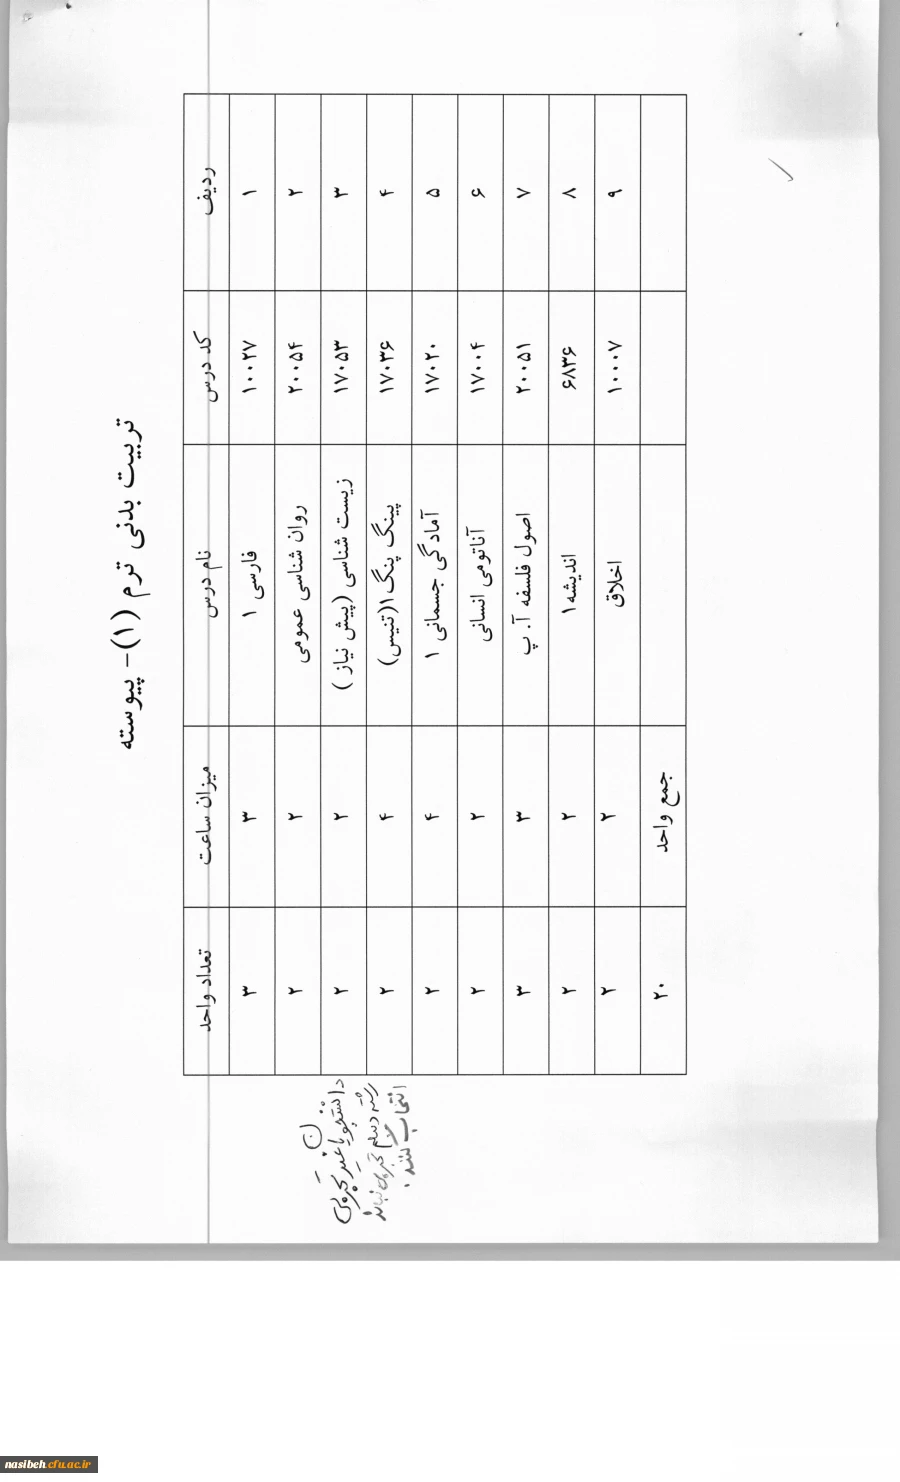 تربیت بدنی ترم (۱)- پیوسته
ردیف کد درس نام درس میزان ساعت تعداد واحد
۱ ۱۰۰۲۷ فارسی ۱ ۳ ۳
۲ ۲۰۰۵۴ روان شناسی عمومی ۲ ۲
۳ ۱۷۰۵۳ زیست شناسی (پیش نیاز) ۲ ۲
۴ ۱۷۰۳۶ پینگ پنگ۱(تنیس) ۴ ۲
۵ ۱۷۰۲۰ آمادگی جسمانی ۱ ۴ ۲
۶ ۱۷۰۰۴ آناتومی انسانی ۲ ۲
۷ ۲۰۰۵۱ اصول فلسفه آ. پ ۳ ۳
۸ ۶۸۳۶ اندیشه۱ ۲ ۲
۹ ۱۰۰۰۷ اخلاق ۲ ۲
جمع واحد ۲۰
دانشجویان غیر تجربی
رشته دیپلم تجربی نباشد
انتخاب کنند.
nasibeh.cfu.ac.ir